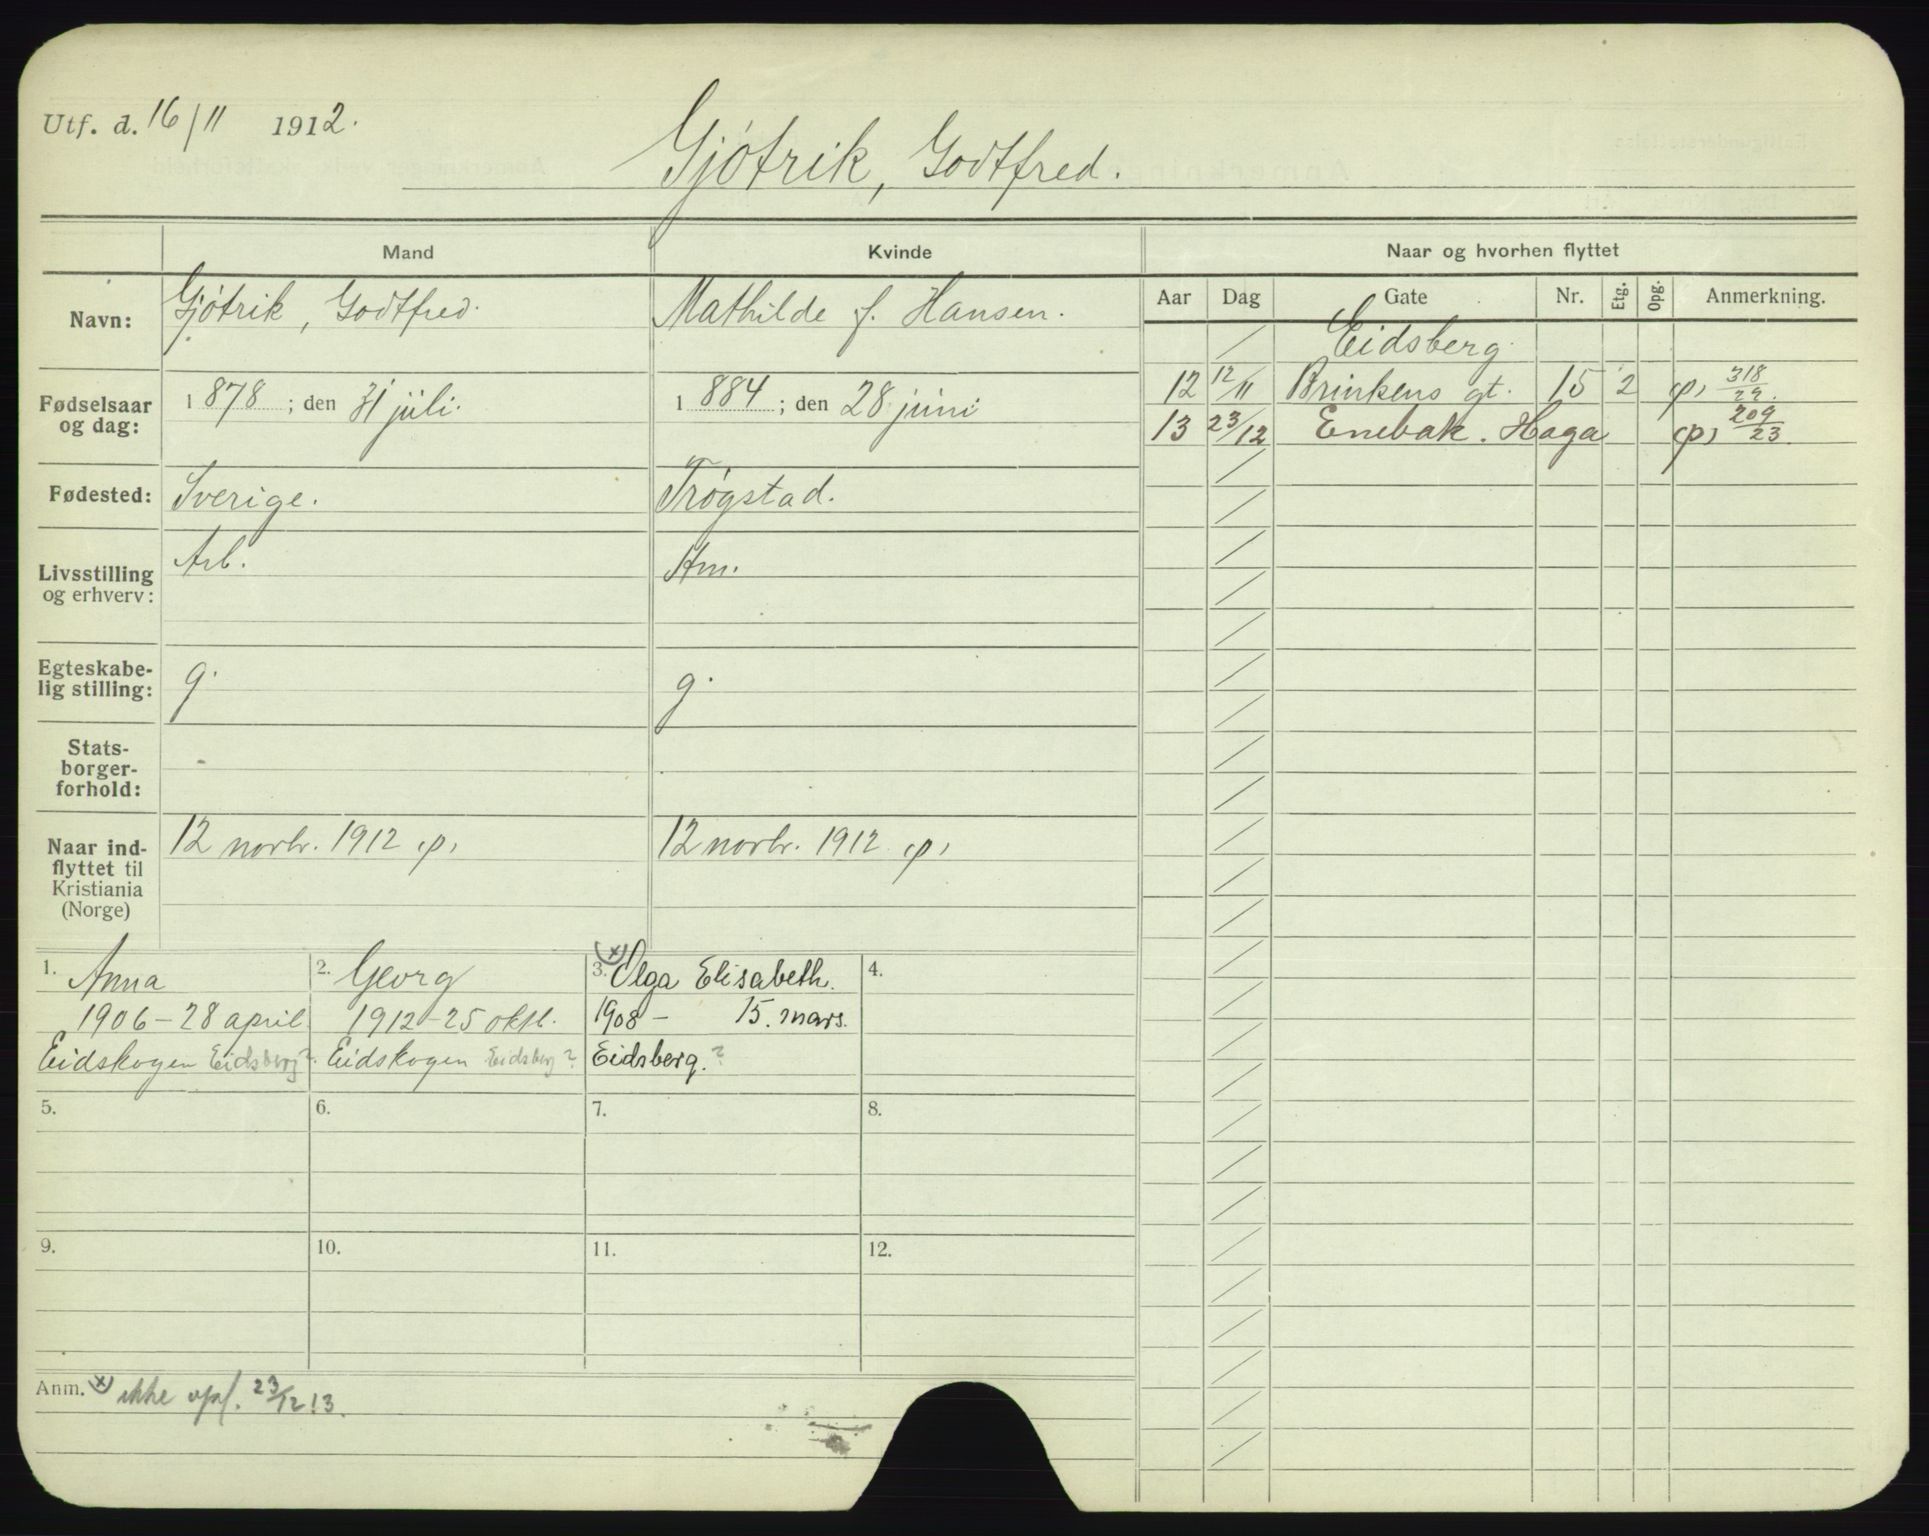 Utf. d. 16/11 1912.
Gjøtrik, Godtfred.
Mand
Kvinde
Naar og hvorhen flyttet
Navn:
Gjøtrik, Godtfred.
Mathilde f. Hansen.
Fødselsaar og dag:
1878; den 31 juli.
1884; den 28 juni
Fødested:
Sverige.
Trøgstad.
Livsstilling og erhverv:
Arb.
Hm.
Egteskabelig stilling:
g.
g.
Statsborgerforhold:
Naar indflyttet til Kristiania (Norge)
12 novbr. 1912 p,
12 novbr. 1912 p,
Aar Dag Gate Nr. Etg. Opg. Anmerkning.
Eidsberg.
12 12/11 Brinkens gt. 15 2 p, 318/22.
13 23/12 Enebak. Haga p, 209/23.
1. Anna
1906 - 28 april.
Eidskogen Eidsberg?
2. Georg
1912 - 25 oktb.
Eidskogen Eidsberg?
(x)
3. Olga Elisabeth.
1908 - 15. mars.
Eidsberg.?
4.
5.
6.
7.
8.
9.
10.
11.
12.
Anm. (x) ikke opf. 23/12 13.